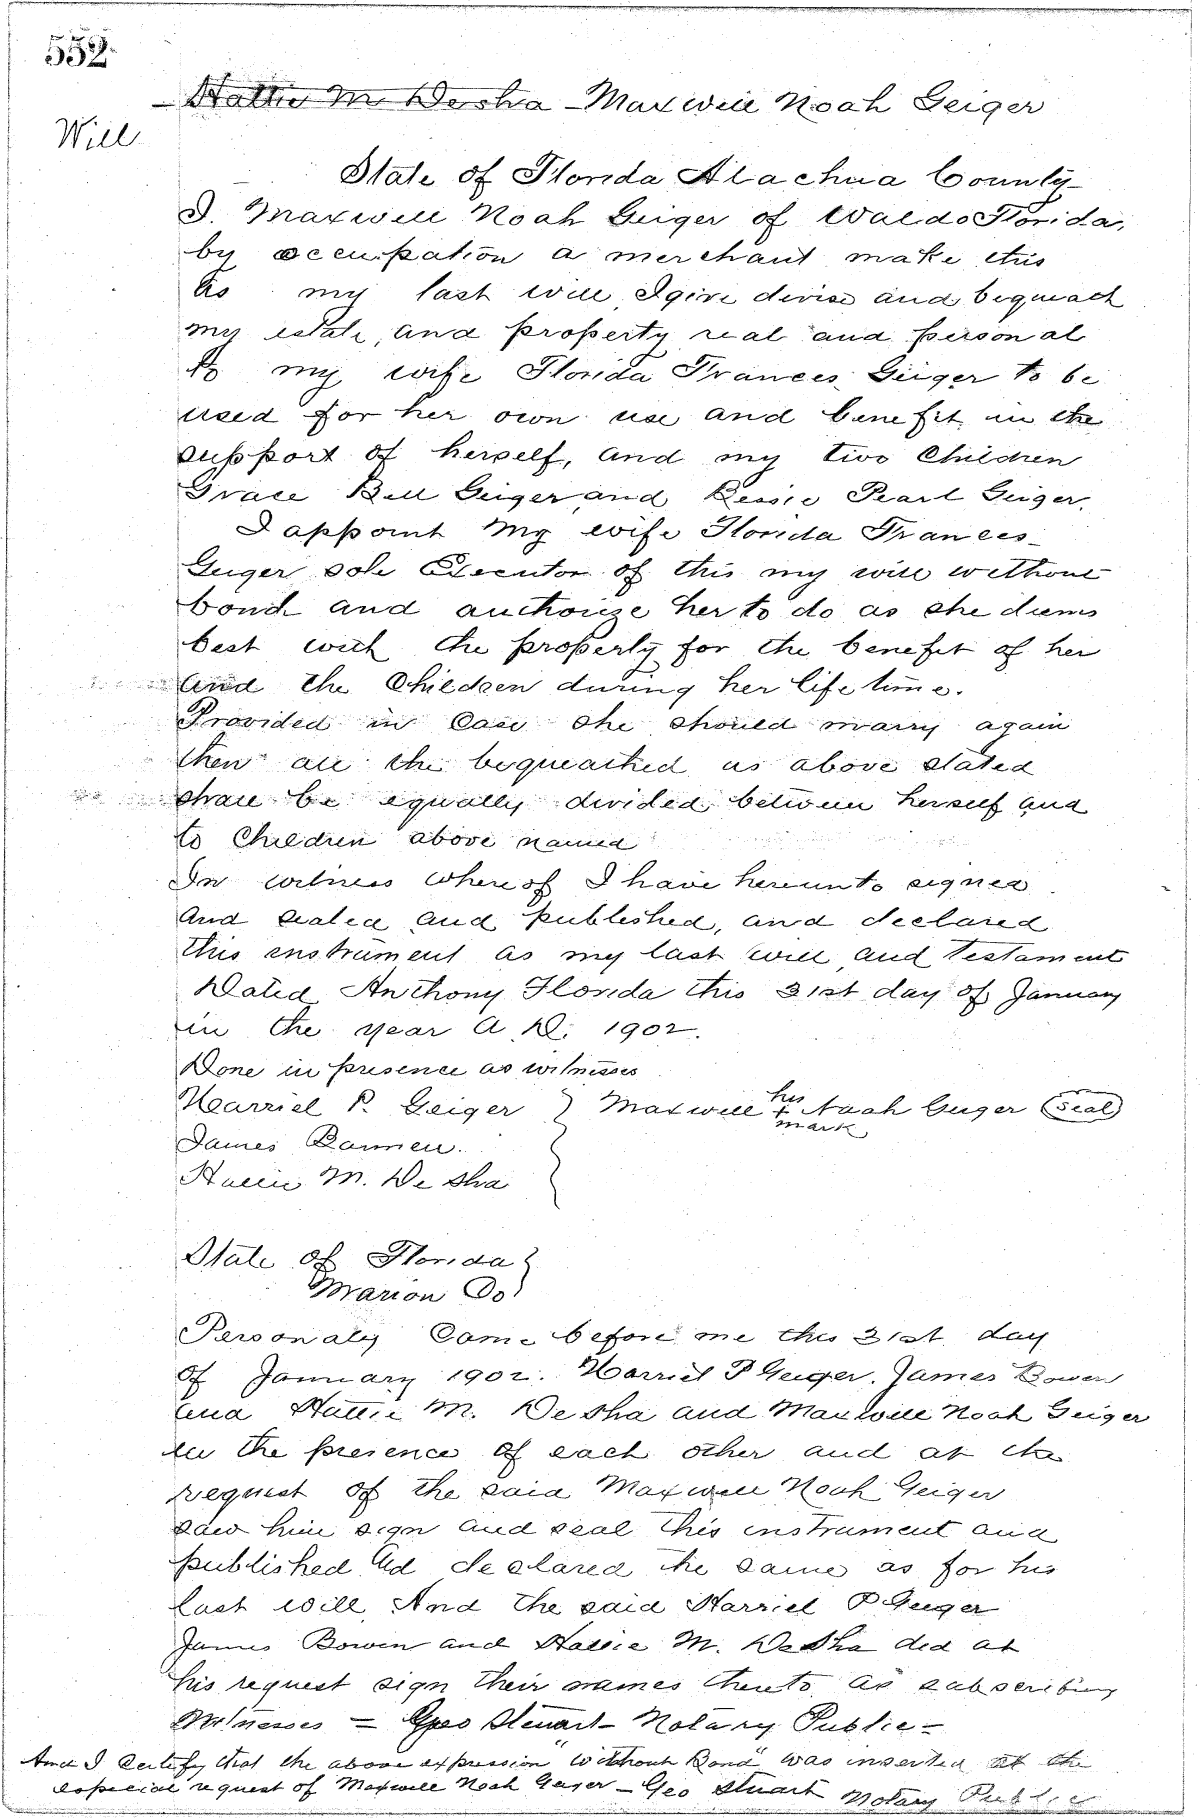 552.
Hattie M DeSha - Maxwell Noah Geiger
Will
State of Florida Alachua County
I. Maxwell Noah Geiger of Waldo Florida,
by occupation a merchant make this
as my last will, I give devise and bequeath
my estate, and property real and personal
to my wife Florida Frances Geiger to be
used for her own use and benefit in the
support of herself, and my two Children
Grace Bell Geiger and Bessie Pearl Geiger,
I appoint my wife Florida Frances
Geiger sole Executor of this my will without
bond and authorize her to do as she deems
best with the property for the benefit of her
and the Children during her life time.
Provided in Case she should marry again
then all the bequeathed as above stated
shall be equally divided between herself and
to Children above named
In witness whereof I have hereunto signed
and sealed and published, and declared
this instrument as my last will and testament
Dated Anthony Florida this 31st day of January
in the year A. D. 1902.
Done in presence as witnesses
Harriel P. Geiger } Maxwell his + mark Noah Geiger (seal)
James
Hattie M. DeSha
State of Florida }
Marion Co
Personaly Came before me this 31st day
of January 1902. Harriel P Geiger. James Bowen
and Hattie M. DeSha and Maxwell Noah Geiger
in the presence of each other and at the
request of the said Maxwell Noah Geiger
saw him sign and seal this instrument and
published ad declared the same as for his
last will. And the said Harriel P Geiger
James Bowen and Hattie M. DeSha did at
his request sign their names thereto as subscribing
Witnesses = Geo Stuart - Notary Public =
And I Certify that the above expression "without Bond" was inserted at the
especial request of Maxwell Noah Geiger - Geo Stuart Notary Public